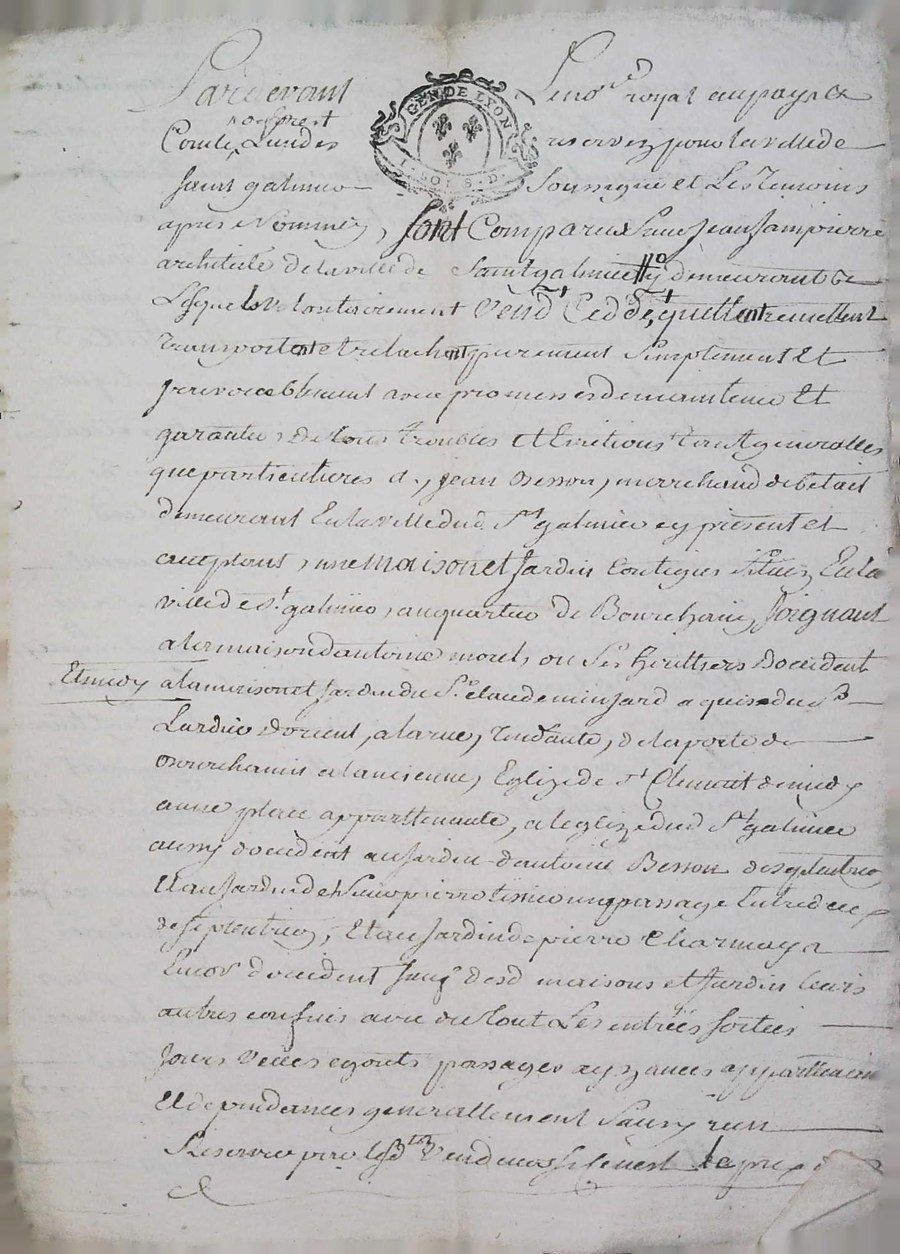 Pardevant Le no.re royal au pays de
GEN. DE LYON
soupres.t
Comte Lun des reservez pour la ville de
Saint galmier Soussigne et Les Temoins
apres Nommez, sont Comparus Jean Jampierre
architecte de la ville de Saint galmier y demeurant
Lesquels volontairement Vend.t Ced.t quittent remettent
transportent et relachent purement Simplement Et
Irrevocablement avec promesses de maintenue Et
garantie, de tous troubles et Evitions tant generalles
que particulieres a, jean Besson, marchand de betail
demeurant En la ville dud. S.t galmier cy present et
acceptant, une Maison et Jardin Contigus Situés En la
ville de S.t galmier, au quartier de Bourchanin, Joignant
a la maison d'antoine morel, ou Ses heritiers D'occident
Et midy a la maison et Jardin du S.r claude minjard acquis du S.r
Lardier d'orient, a la rue, Tendante, de la porte de
Bourchanin a l'ancienne, Eglize de S.t Clement de midy
a une place appartenante, a l'eglize dud. S.t galmier
aussy d'occident au Jardin d'antoine Besson de septentrion
Et au Jardin de pierre un passage Entre deux
de septentrion, Et au Jardin de pierre Charmeya
Encor d'occident Sauf desd. maisons et Jardin leurs
autres confins avec de tout Les entrées sorties
Jours Veües egouts passages ayzances appartenances
Et dependances generallement Sans y rien
Reserver par lesd. Vendeurs le prix